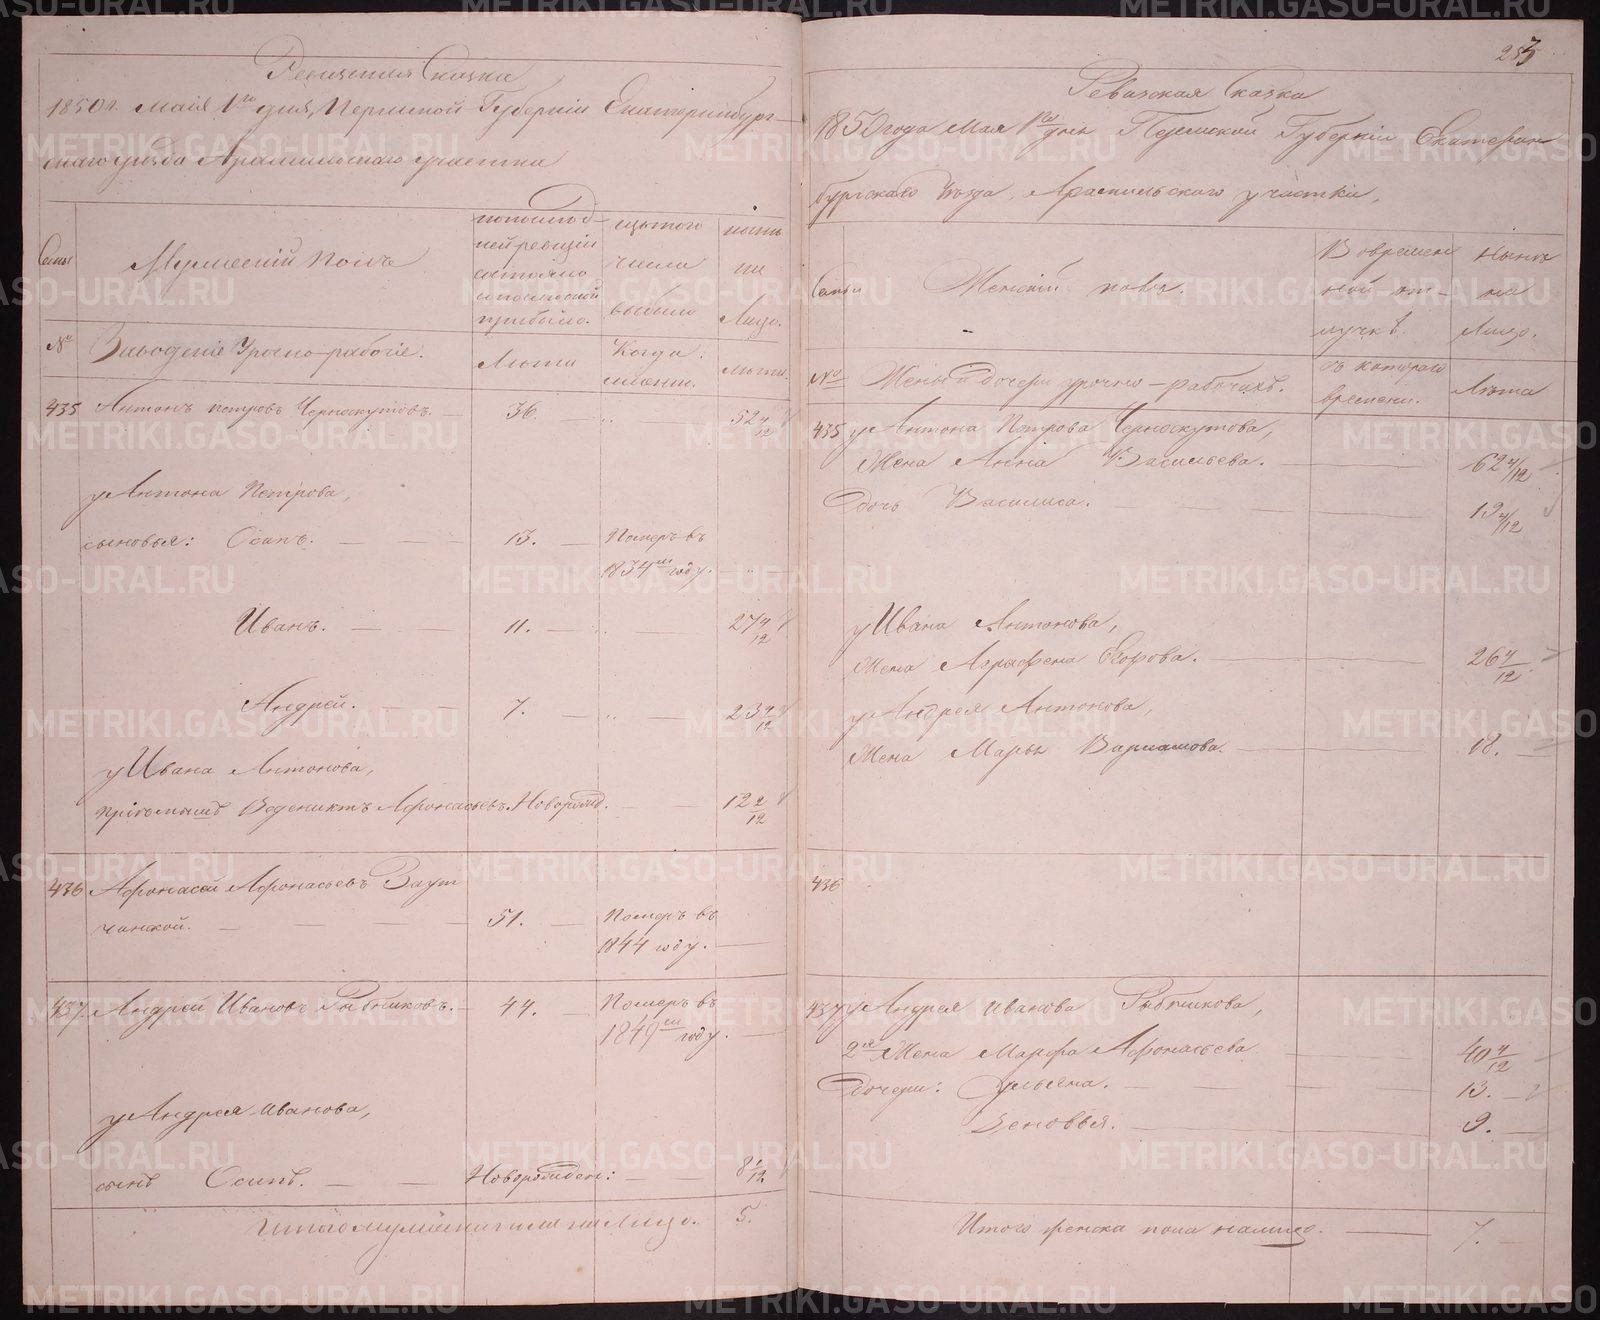 Ревизская Сказка
1850 г. маія 1го дня, Пермской Губерніи Екатеринбург-
скаго уезда Арамильскаго участка
Семьи
Мужескій полъ
по последней ревизіи состояло и после оной прибыло.
изъ того числа выбыло
ныне на Лицо.
№
Заводскіе Урочно-рабочіе.
Лета
Когда именно.
лета.
435 Антонъ петровъ Черноскутовъ. 36. 52 4/12
у Антона Петрова,
сыновья: Осипъ. 13. Померъ въ
1834м году.
Иванъ. 11. 27 4/12
Андрей. 7. 23 4/12
у Ивана Антонова,
Веденихтъ Афонасьевъ. Новорожд. 12 2/12
436 Афонасей Афонасьевъ Заут
51. Померъ въ
1844 году.
437 Андрей Ивановъ Рыбниковъ. 44. Померъ въ
1849м году.
у Андрея Иванова,
сынъ Осипъ. Новорожден: 8 1/12
Итого мужеска пола на Лицо. 5.
253
Ревизская Сказка
1850 года Мая 1го дня Пермской Губерніи Екатерин
бургскаго Уезда, Арамильскаго участка,
Семьи
Женскій полъ.
Во временной отлучкѣ.
Нынѣ на Лицо.
№
Жены и дочери урочно-рабочихъ.
съ котораго времени.
Лѣта
435 у Антона Петрова Черноскутова,
Жена Анна Васильева. 62 4/12
Дочь Василиса. 19 4/12
у Ивана Антонова,
Жена Аграфена Егорова. 26 4/12
у Андрея Антонова,
Жена Марья 18.
436
437 у Андрея Иванова Рыбникова,
2я Жена Марфа Афонасьева 40 4/12
Дочери: Ульяна. 13.
Зеновья. 9.
Итого женска пола налицо. 7.
METRIKI.GASO-URAL.RU